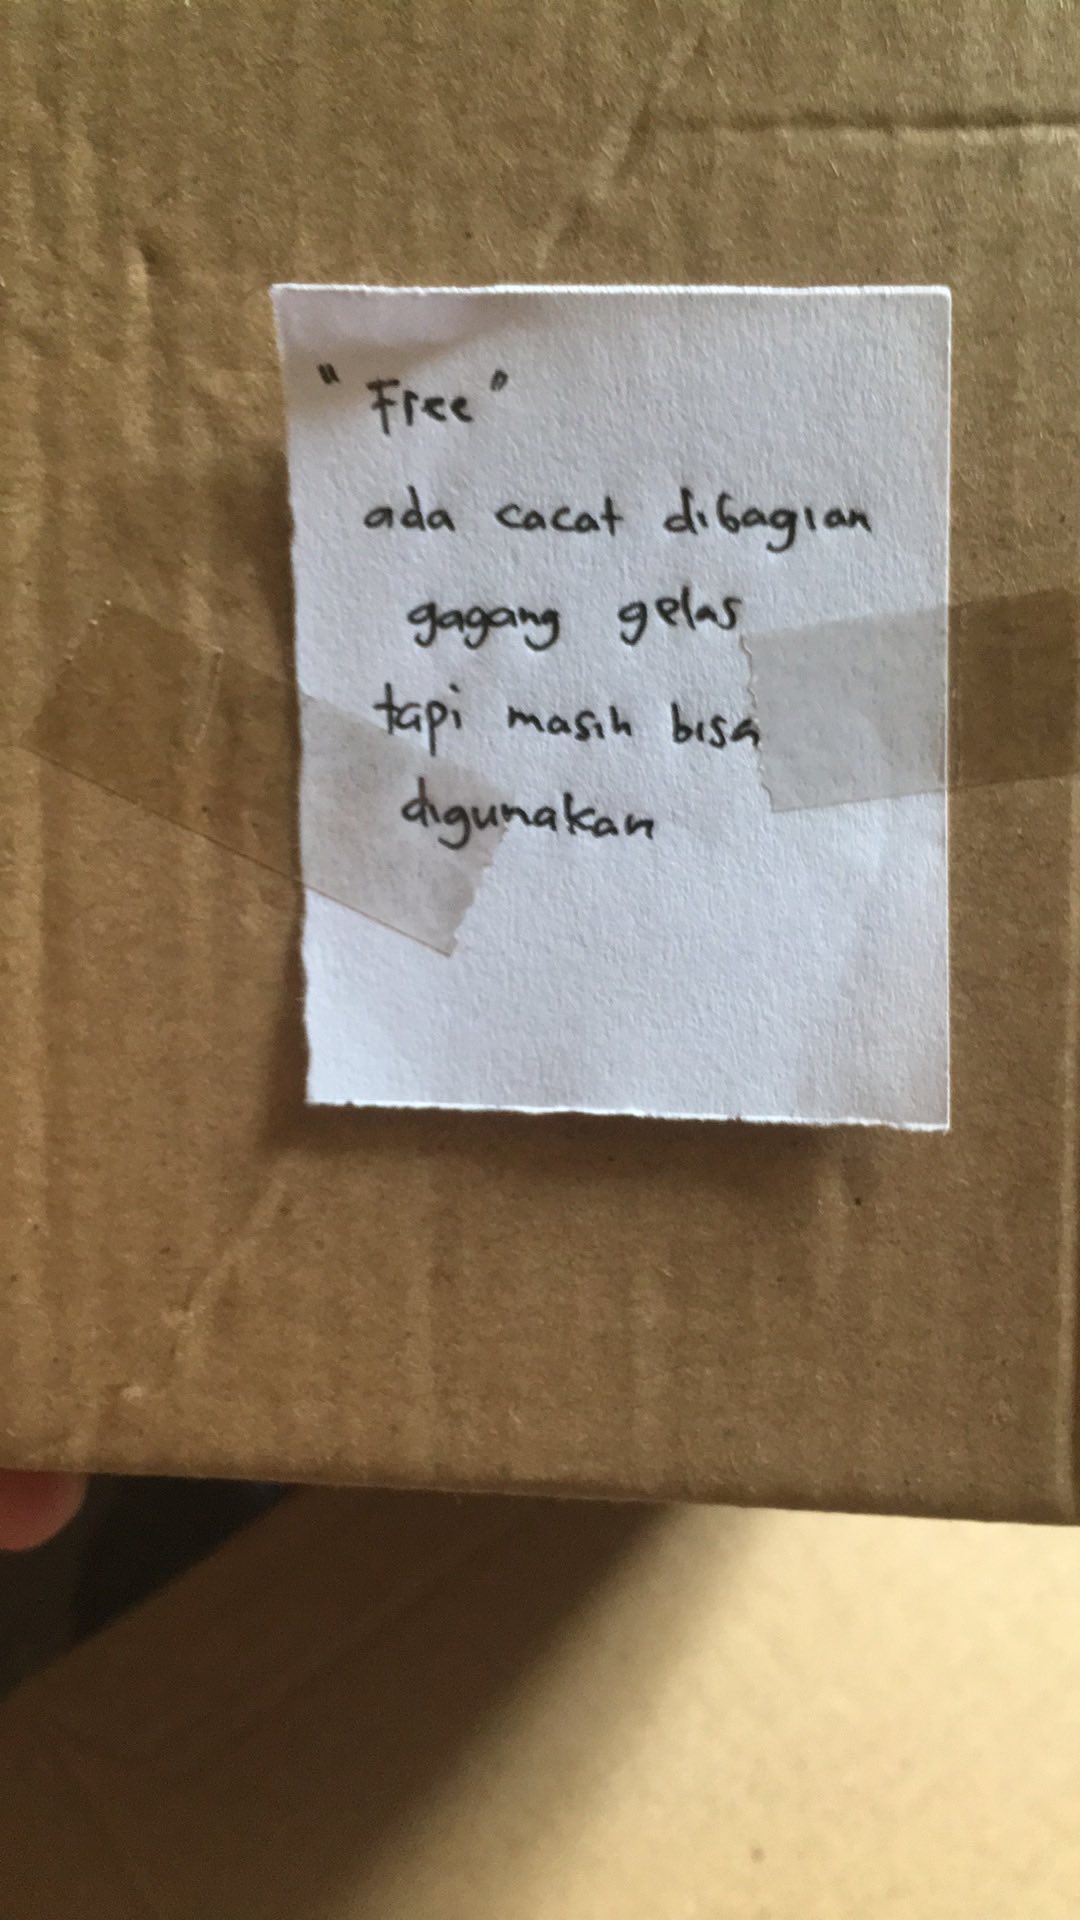 "Free"
ada cacat dibagian
gagang gelas
tapi masih bisa
digunakan